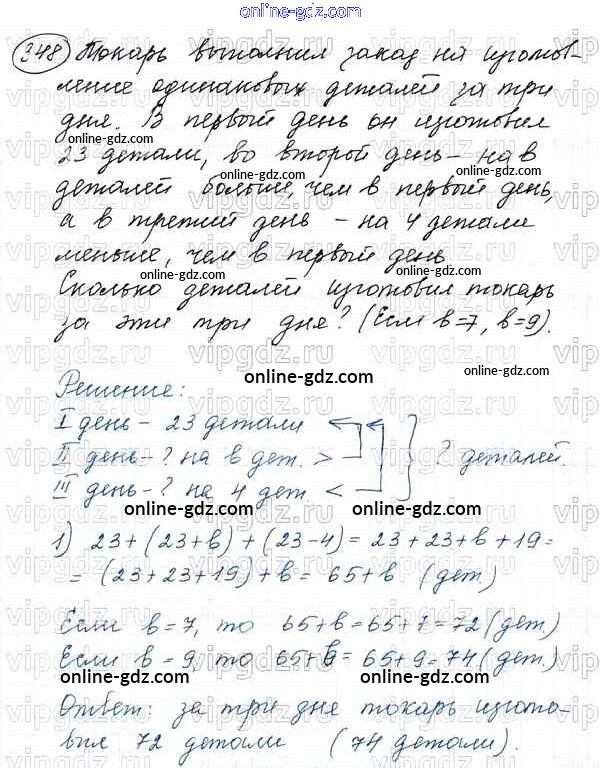 online-gdz.com
348 Токарь выполнил заказ на изготов-
ление одинаковых деталей за три
дня. В первый день он изготовил
online-gdz.com online-gdz.com
23 детали, во второй день – на b
деталей больше, чем в первый день,
а в третий день – на 4 детали
меньше, чем в первый день
online-gdz.com online-gdz.com
Сколько деталей изготовил токарь
за эти три дня? (Если b=7, b=9).
vipgdz.ru vipgdz.ru vipgdz.ru
online-gdz.com
Решение:
I день – 23 детали
II день – ? на b дет. >
III день – ? на 4 дет. <
? деталей.
online-gdz.com online-gdz.com
1) 23+(23+b)+(23-4)=23+23+b+19=
=(23+23+19)+b=65+b (дет.)
online-gdz.com
Если b=7, то 65+b=65+7=72(дет.)
Если b=9, то 65+b=65+9=74(дет.)
online-gdz.com online-gdz.com
Ответ: за три дня токарь изгото-
вил 72 детали (74 детали).
online-gdz.com